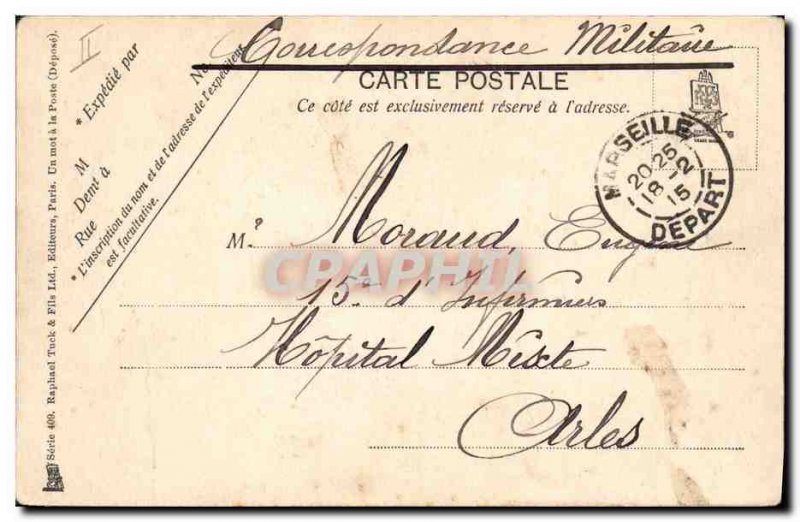 Correspondance Militaire
CARTE POSTALE
Ce côté est exclusivement réservé à l'adresse.
II
* Expédié par
M
Demt à
Rue No
* L'inscription du nom et de l'adresse de l'expéditeur
est facultative.
MARSEILLE
20-25
18-2
15
DÉPART
M. Moraud, Eugène
15e d'Infirmiers
Hôpital Mixte
Arles
CPAPHIL
Série 409. Raphael Tuck & Fils Ltd., Editeurs, Paris. Un mot à la Poste (Déposé).